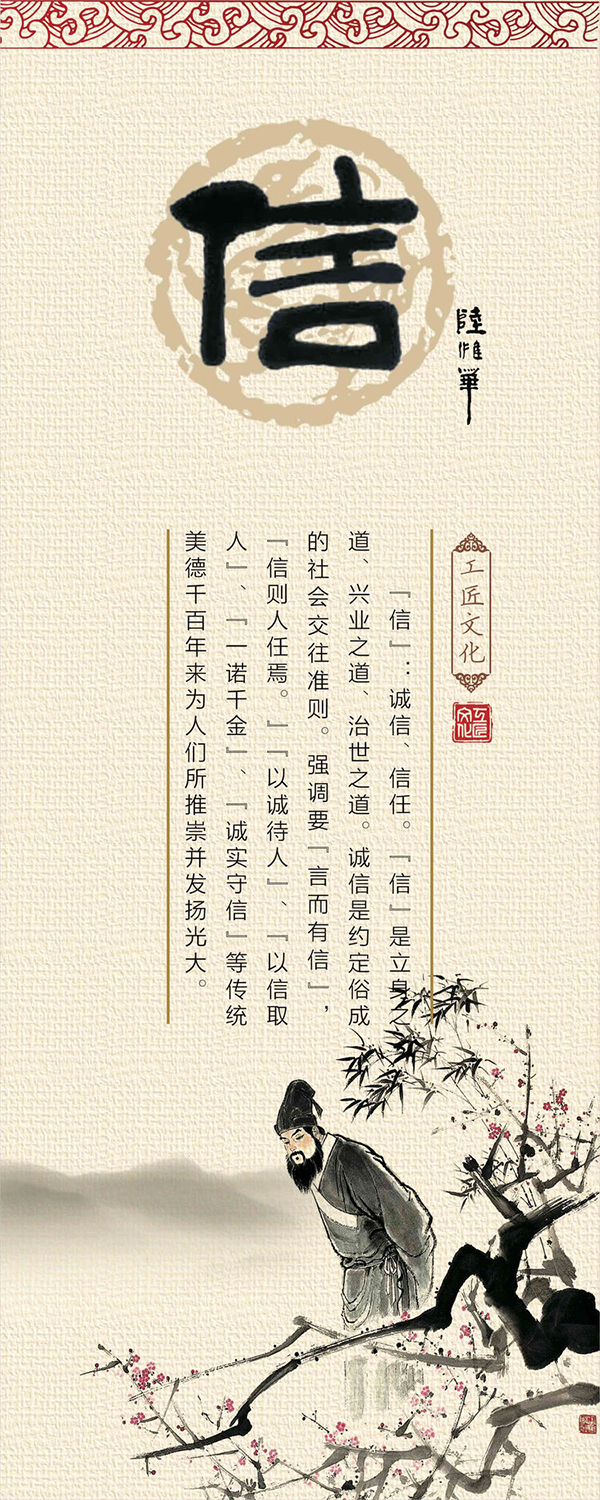 信
陸維華
工匠文化
工匠文化
『信』：诚信、信任。『信』是立身之
道、兴业之道、治世之道。诚信是约定俗成
的社会交往准则。强调要『言而有信』，
『信则人任焉。』『以诚待人』、『以信取
人』、『一诺千金』、『诚实守信』等传统
美德千百年来为人们所推崇并发扬光大。